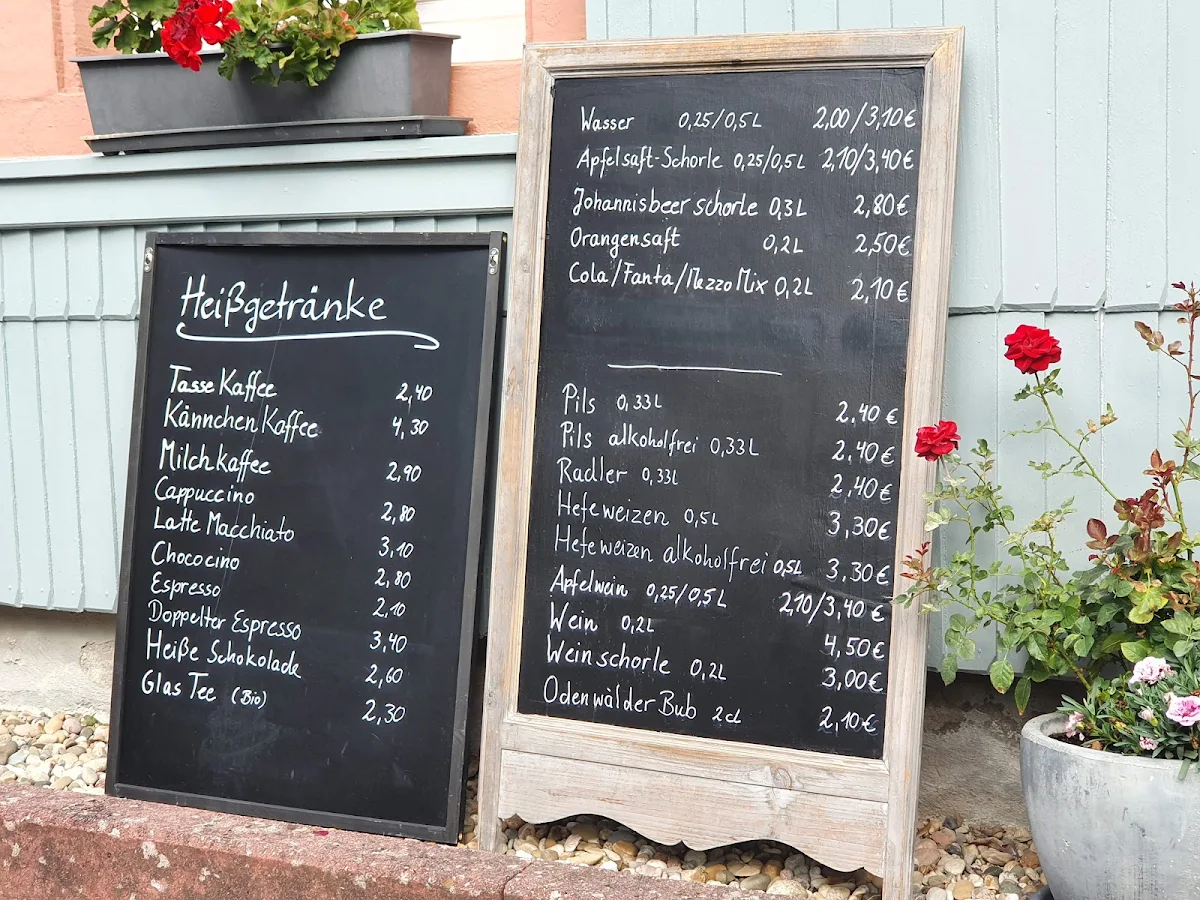 Heißgetränke
Tasse Kaffee 2,40
Kännchen Kaffee 4,30
Milchkaffee 2,90
Cappuccino 2,80
Latte Macchiato 3,10
Chococino 2,80
Espresso 2,10
Doppelter Espresso 3,40
Heiße Schokolade 2,60
Glas Tee (Bio) 2,30
Wasser 0,25/0,5L 2,00/3,10€
Apfelsaft-Schorle 0,25/0,5L 2,10/3,40€
Johannisbeerschorle 0,3L 2,80€
Orangensaft 0,2L 2,50€
Cola/Fanta/MezzoMix 0,2L 2,10€
Pils 0,33L 2.40€
Pils alkoholfrei 0,33L 2,40€
Radler 0,33L 2,40€
Hefeweizen 0,5L 3,30€
Hefeweizen alkoholfrei 0,5L 3,30€
Apfelwein 0,25/0,5L 2,10/3,40€
Wein 0,2L 4,50€
Weinschorle 0,2L 3,00€
Odenwälder Bub 2cl 2,10€